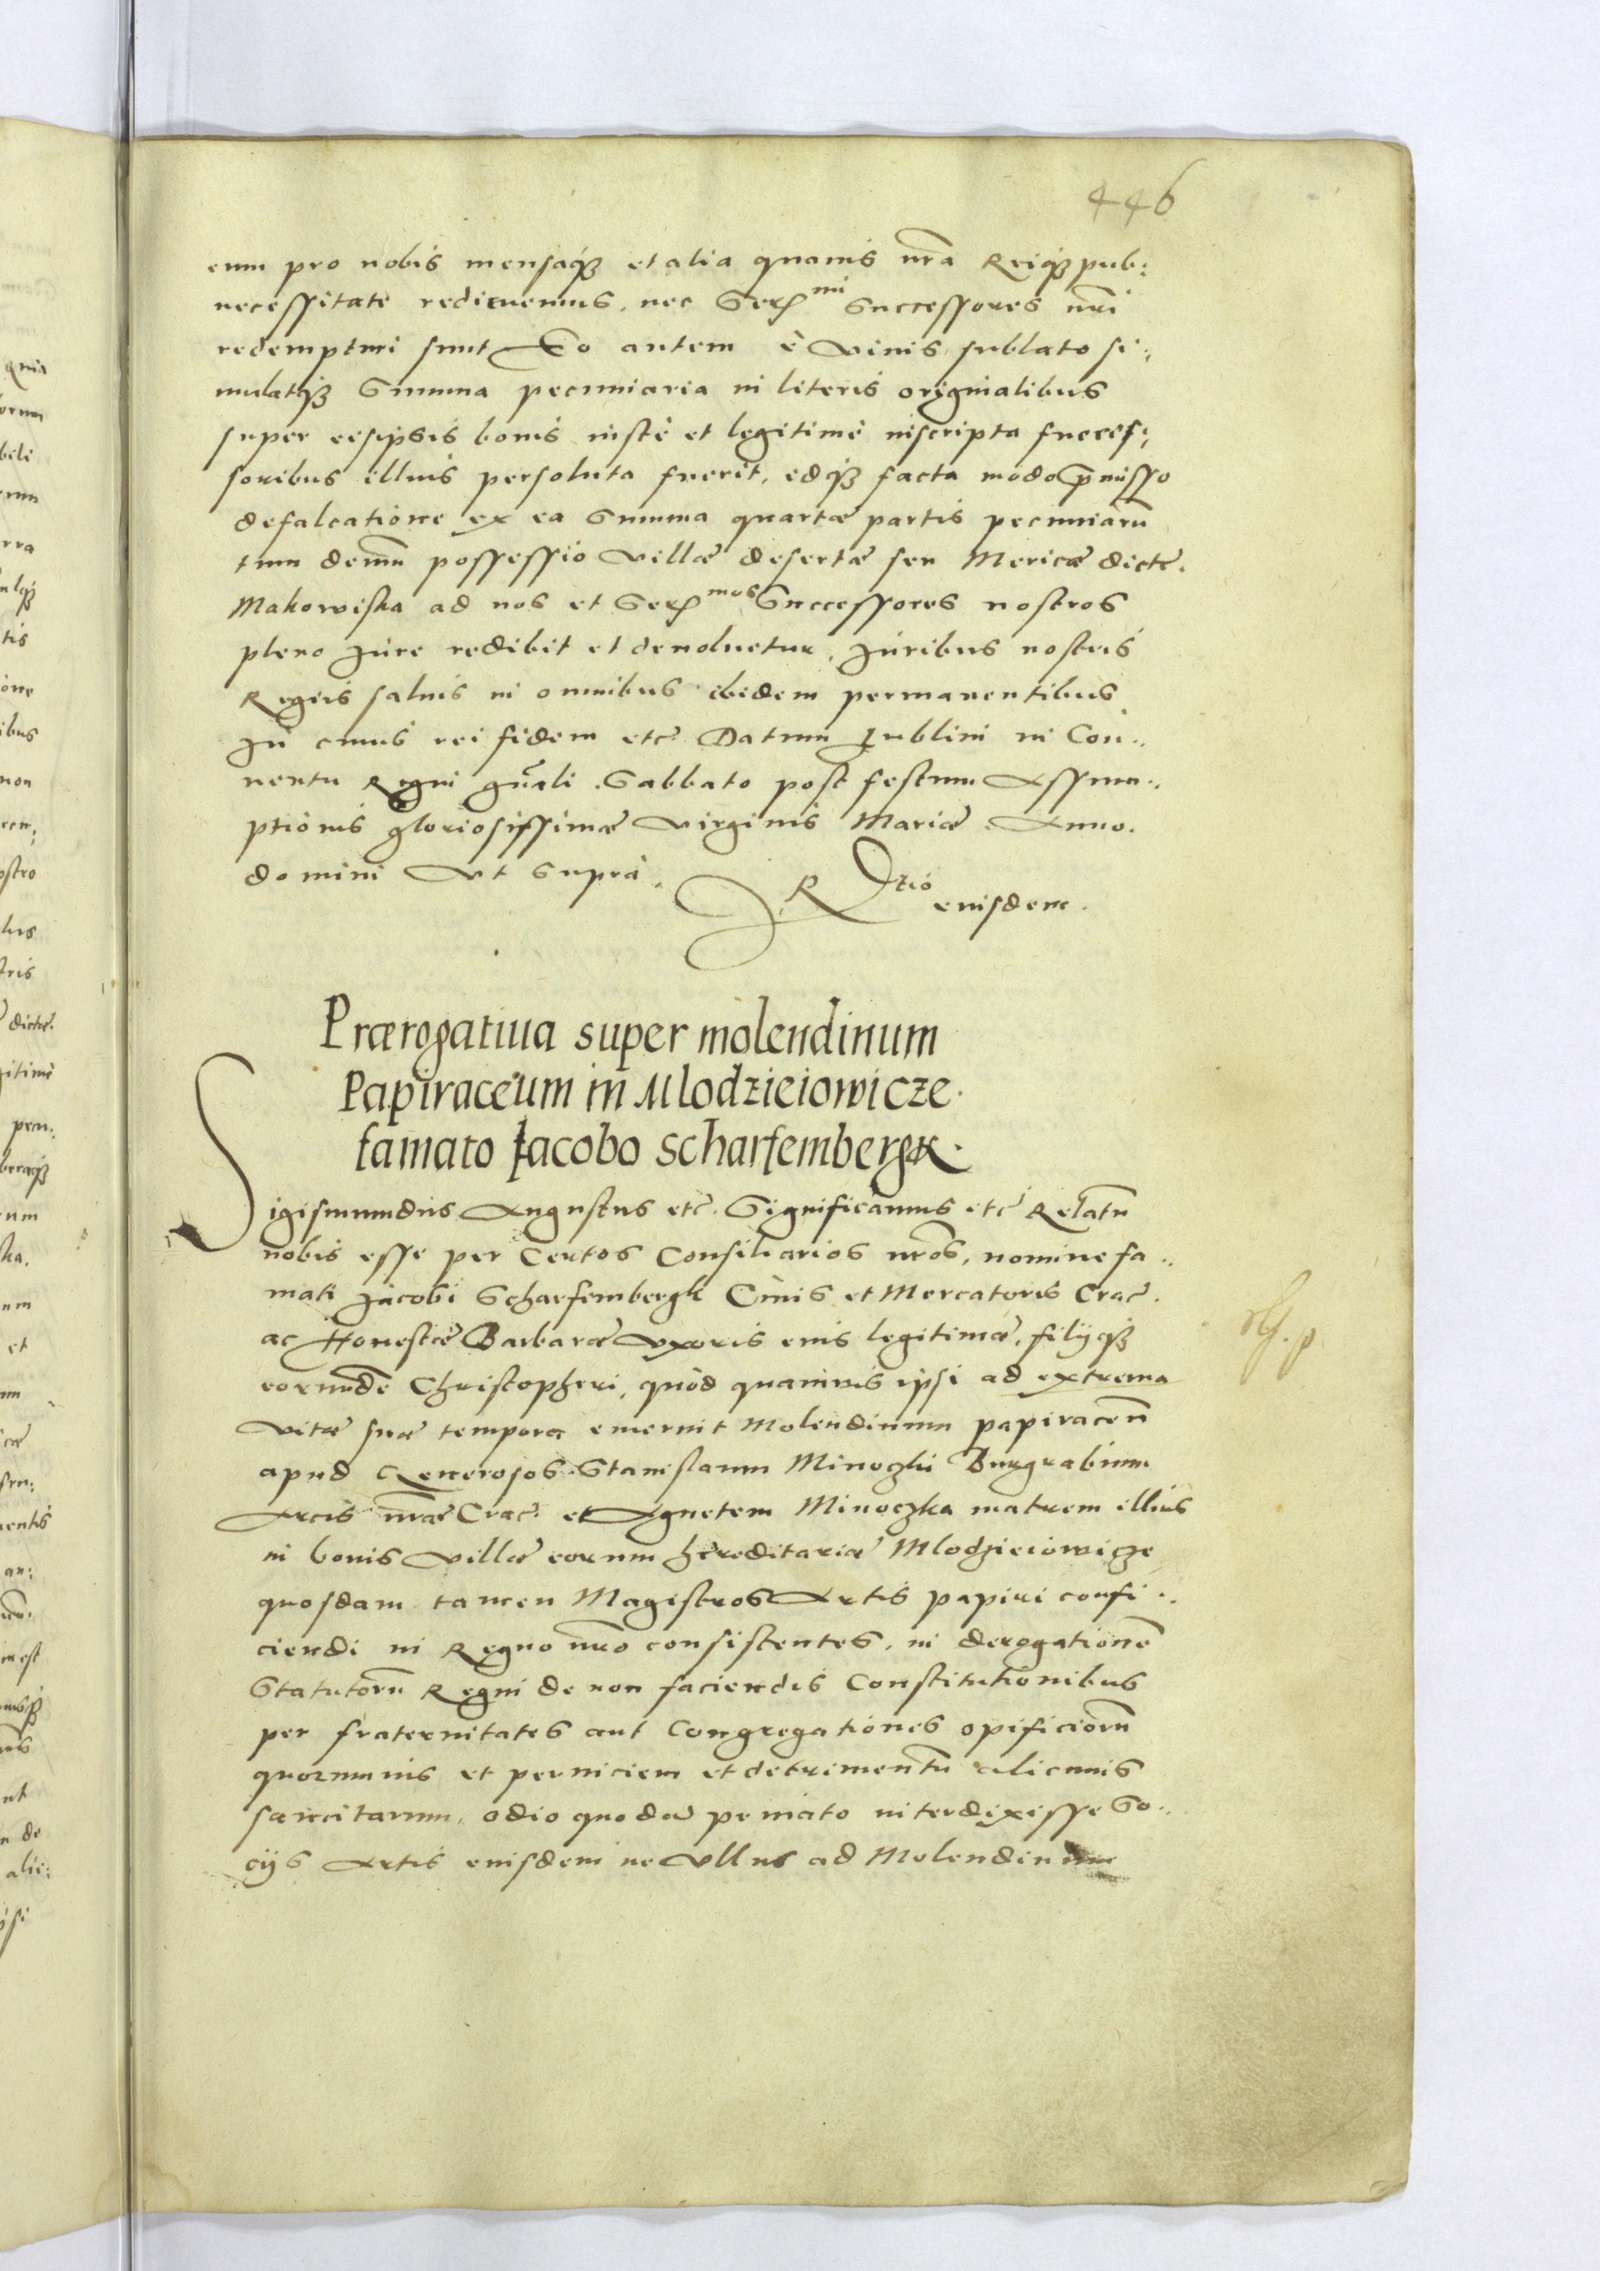 446
eum pro nobis mensaq₃ et alia quauis nr̃a Reiq₃ pub:
necessitate redimemus, nec Ser^mi Successores nr̃i
redempturi sunt Eo autem è viuis sublato si:
mulatq₃ Summa pecuniaria in literis originalibus
super eisipsis bonis iustè et legitimè inscripta succes:
soribus illius persoluta fuerit, eaq₃ facta modo p̃misso
defalcatione ex ea Summa quartæ partis pecuniarũ
tum demũ possessio villæ desertæ seu Mericæ dictæ
Makowiska ad nos et Ser^mos Successores nostros
pleno Jure redibit et deuoluetur, Juribus nostris
Regiis saluis in omnibus ibidem permanentibus
In cuius rei fidem etc̃ Datum Lublini in Con:
uentu Regni gñali Sabbato post festum Assum:
ptionis gloriosissimæ virginis Mariæ Anno.
domini vt supra.
R^tio
eiusdem.
Prærogatiua super molendinum
Papiraceum in Mlodzieiowicze
famato Jacobo Scharfembergk.
Sigismundus Augustus etc̃. Significamus etc̃ Relatũ
nobis esse per Certos Consiliarios nr̃os, nomine fa:
mati Jacobi Scharfembergk Ciuis et Mercatoris Crac̃.
ac Honestæ Barbaræ vxoris eius legitimæ, filijq₃
eorundẽ Christopheri, quòd quamuis ipsi ad extrema
vitæ suæ tempora emerint Molendinum papiraceũ
apud Generosos Stanislaum Minoczki Burgrabium
Arcis nr̃æ Crac̃ et Agnetem Minoczka matrem illius
in bonis villæ eorum hereditariæ Mlodzieiowicze
quosdam tamen Magistros Artis papiri confi:
ciendi in Regno nr̃o consistentes, in derogationẽ
Statutorũ Regni de non faciendis Constitutionibus
per fraternitates aut Congregationes opificiorũ
quorumuis et perniciem et detrimentũ alicuius
sancitarum, odio quodã priuato interdixisse So:
cijs Artis eiusdem ne vllus ad Molendinum